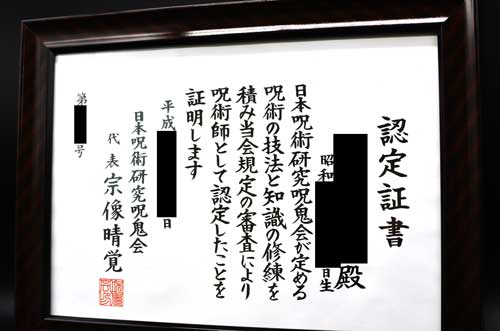 認定証書
殿
昭和
日生
日本呪術研究呪鬼会が定める
呪術の技法と知識の修練を
積み当会規定の審査により
呪術師として認定したことを
証明します
平成
日
日本呪術研究呪鬼会
代表 宗像晴覚
第
号